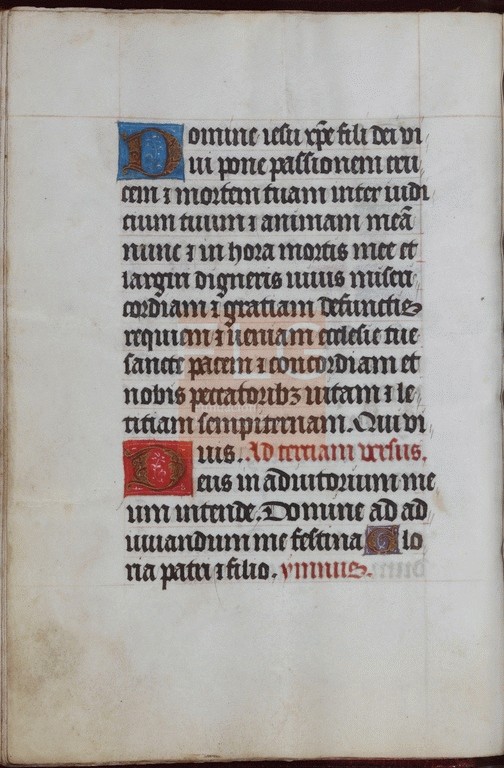 Domine iesu xp̄e fili dei vi
ui pone passionem cru
cem ⁊ mortem tuam inter iudi
cium tuum ⁊ animam meā
nunc ⁊ in hora mortis mee et
largiri digneris uiuis miseri
cordiam ⁊ gratiam defunctis
requiem ⁊ ueniam ecclesie tue
sancte pacem ⁊ concordiam et
nobis peccatoribꝫ uitam ⁊ le
titiam sempiternam. Qui vi
uis. Ad terciam versus.
Deus in adiutorium me
um intende. Domine ad ad
iuuandum me festina Glo
ria patri ⁊ filio. ymnus.